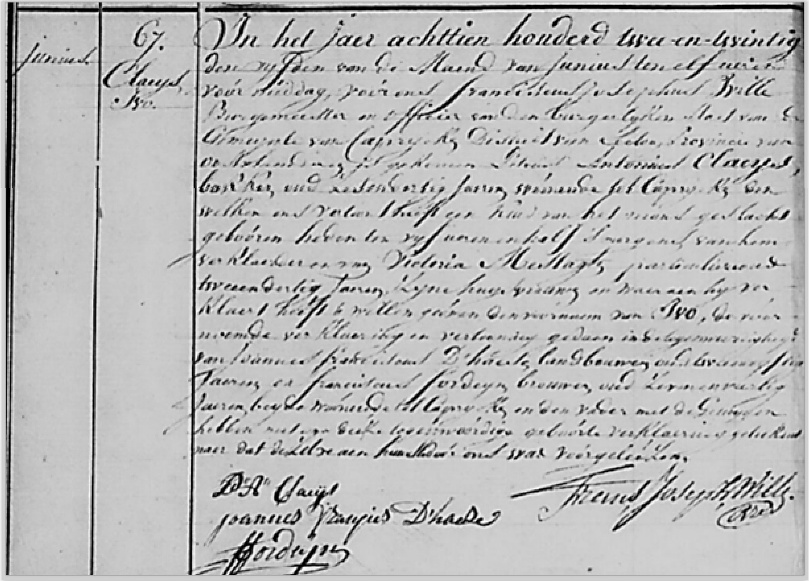 junius.
67.
Claeys
Ivo.
In het jaer achttien honderd twee-en-twintig
den vyfden van de Maend van Junius ten elf uren
voór middag, voór ons franciscus josephus Wille
Borgemeester en officier van den burgerlyken Staet van de
Gemeente van Capryck, District van Eecloo, Provincie van
oostvlaenderen, is gekomen Petrus Antonius Claeys,
bakker, oud zesenveertig Jaeren, wónende tot Capryck, den
welken ons vertoont heeft een kind van het mans geslacht
geboóren heden ten vyf uren en half s'morgens van hem
verklaerder en van Victoria Mestagh, particuliere oud
tweeendertig Jaeren, zyne huys vrouwe, en waer aen hy ver
klaert heeft te willen geéven den voornaem van Ivo, de voor
noemde verklaering en vertooning gedaen in de tegenwoordigheyd
van Joannes franciscus D'haese, landbouwer, oud
Jaeren, en franciscus Fordeyn, brouwer, oud zevenenveertig
Jaeren, beyde wónende tot Capryck, en den vader met de Getuygen
hebben met ons deéze tegenwoordige geboórte verklaering geteekent
naer dat dezelve aen hun door ons was voorgeleézen.
Ps An Claeys
joannes Fransies D'haese
Frans Joseph Wille
Fordeyn